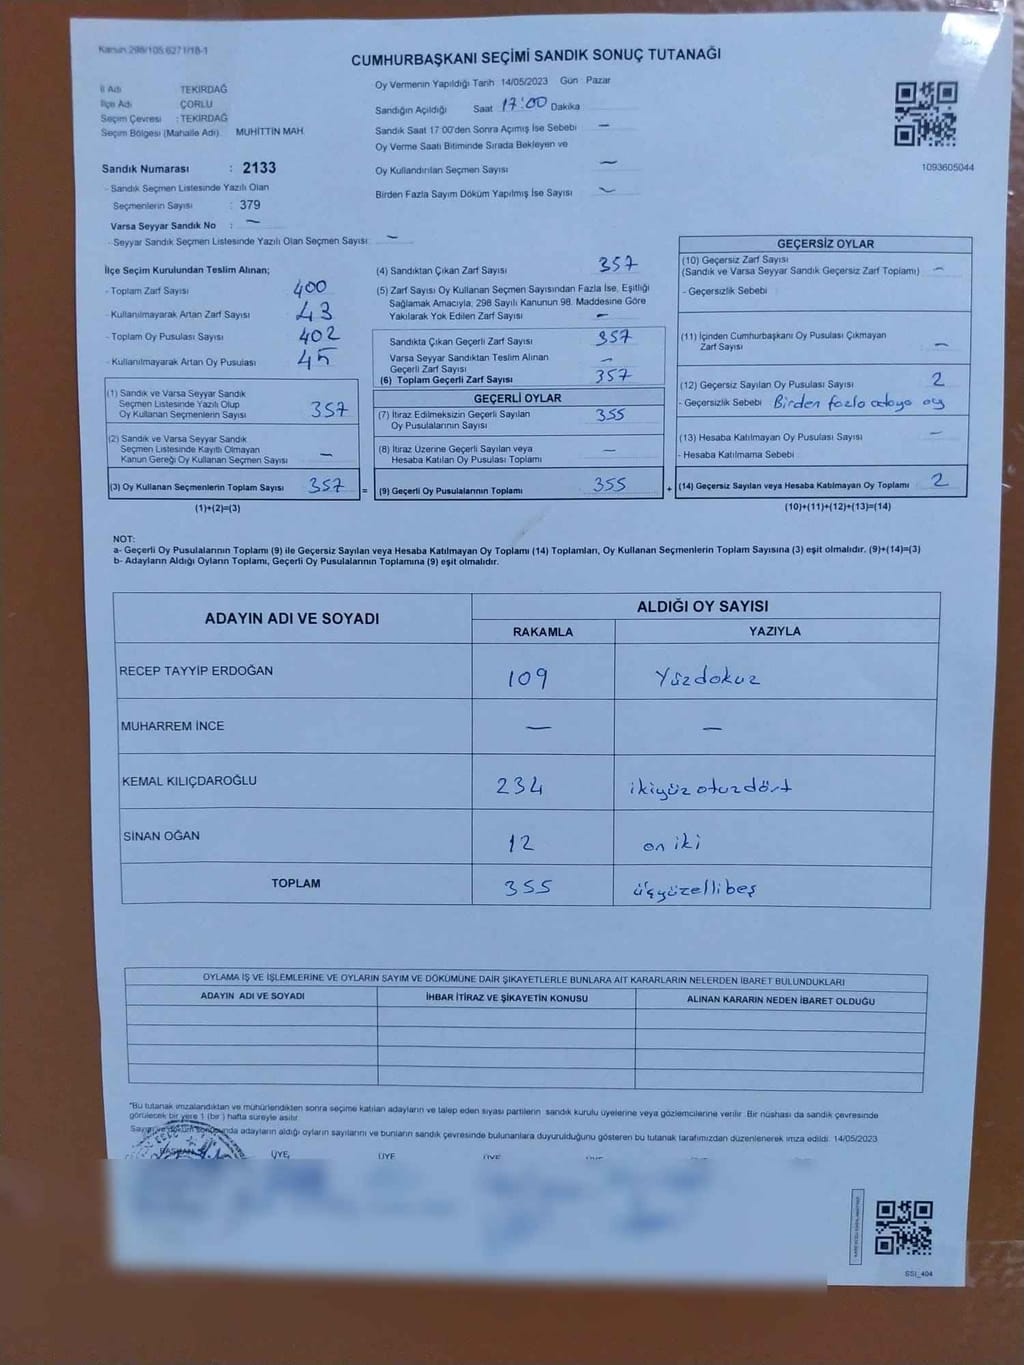 Kanun:298/105.6271/18-1
CUMHURBAŞKANI SEÇİMİ SANDIK SONUÇ TUTANAĞI
İl Adı TEKİRDAĞ
İlçe Adı ÇORLU
Seçim Çevresi : TEKİRDAĞ
Seçim Bölgesi (Mahalle Adı) MUHİTTİN MAH.
Sandık Numarası : 2133
- Sandık Seçmen Listesinde Yazılı Olan
Seçmenlerin Sayısı : 379
Varsa Seyyar Sandık No : —
- Seyyar Sandık Seçmen Listesinde Yazılı Olan Seçmen Sayısı: —
Oy Vermenin Yapıldığı Tarih 14/05/2023 Gün : Pazar
Sandığın Açıldığı Saat 17:00 Dakika
Sandık Saat 17 00'den Sonra Açımış İse Sebebi —
Oy Verme Saati Bitiminde Sırada Bekleyen ve
Oy Kullandırılan Seçmen Sayısı —
Birden Fazla Sayım Döküm Yapılmış İse Sayısı —
1093605044
İlçe Seçim Kurulundan Teslim Alınan;
- Toplam Zarf Sayısı 400
- Kullanılmayarak Artan Zarf Sayısı 43
- Toplam Oy Pusulası Sayısı 402
- Kullanılmayarak Artan Oy Pusulası 45
(1) Sandık ve Varsa Seyyar Sandık
Seçmen Listesinde Yazılı Olup
Oy Kullanan Seçmenlerin Sayısı 357
(2) Sandık ve Varsa Seyyar Sandık
Seçmen Listesinde Kayıtlı Olmayan
Kanun Gereği Oy Kullanan Seçmen Sayısı —
(3) Oy Kullanan Seçmenlerin Toplam Sayısı 357 =
(1)+(2)=(3)
(4) Sandıktan Çıkan Zarf Sayısı 357
(5) Zarf Sayısı Oy Kullanan Seçmen Sayısından Fazla İse, Eşitliği
Sağlamak Amacıyla; 298 Sayılı Kanunun 98. Maddesine Göre
Yakılarak Yok Edilen Zarf Sayısı —
Sandıkta Çıkan Geçerli Zarf Sayısı 357
Varsa Seyyar Sandıktan Teslim Alınan
Geçerli Zarf Sayısı —
(6) Toplam Geçerli Zarf Sayısı 357
GEÇERLİ OYLAR
(7) İtiraz Edilmeksizin Geçerli Sayılan
Oy Pusulalarının Sayısı 355
(8) İtiraz Üzerine Geçerli Sayılan veya
Hesaba Katılan Oy Pusulası Toplamı —
(9) Geçerli Oy Pusulalarının Toplamı 355 +
GEÇERSİZ OYLAR
(10) Geçersiz Zarf Sayısı
(Sandık ve Varsa Seyyar Sandık Geçersiz Zarf Toplamı) —
- Geçersizlik Sebebi
(11) İçinden Cumhurbaşkanı Oy Pusulası Çıkmayan
Zarf Sayısı —
(12) Geçersiz Sayılan Oy Pusulası Sayısı 2
- Geçersizlik Sebebi Birden fazla adaya oy
(13) Hesaba Katılmayan Oy Pusulası Sayısı —
- Hesaba Katılmama Sebebi
(14) Geçersiz Sayılan veya Hesaba Katılmayan Oy Toplamı 2
(10)+(11)+(12)+(13)=(14)
NOT:
a- Geçerli Oy Pusulalarının Toplamı (9) ile Geçersiz Sayılan veya Hesaba Katılmayan Oy Toplamı (14) Toplamları, Oy Kullanan Seçmenlerin Toplam Sayısına (3) eşit olmalıdır. (9)+(14)=(3)
b- Adayların Aldığı Oyların Toplamı, Geçerli Oy Pusulalarının Toplamına (9) eşit olmalıdır.
ADAYIN ADI VE SOYADI ALDIĞI OY SAYISI
RAKAMLA YAZIYLA
RECEP TAYYİP ERDOĞAN 109 Yüzdokuz
MUHARREM İNCE — —
KEMAL KILIÇDAROĞLU 234 ikiyüz otuzdört
SİNAN OĞAN 12 on iki
TOPLAM 355 üçyüzellibeş
OYLAMA İŞ VE İŞLEMLERİNE VE OYLARIN SAYIM VE DÖKÜMÜNE DAİR ŞİKAYETLERLE BUNLARA AİT KARARLARIN NELERDEN İBARET BULUNDUKLARI
ADAYIN ADI VE SOYADI İHBAR İTİRAZ VE ŞİKAYETİN KONUSU ALINAN KARARIN NEDEN İBARET OLDUĞU
"Bu tutanak imzalandıktan ve mühürlendikten sonra seçime katılan adayların ve talep eden siyasi partilerin sandık kurulu üyelerine veya gözlemcilerine verilir. Bir nüshası da sandık çevresinde
görülecek bir yere 1 (bir) hafta süreyle asılır.
adayların aldığı oyların sayılarını ve bunların sandık çevresinde bulunanlara duyurulduğunu gösteren bu tutanak tarafımızdan düzenlenerek imza edildi. 14/05/2023
BAŞKAN ÜYE ÜYE ÜYE ÜYE ÜYE
SSI_404